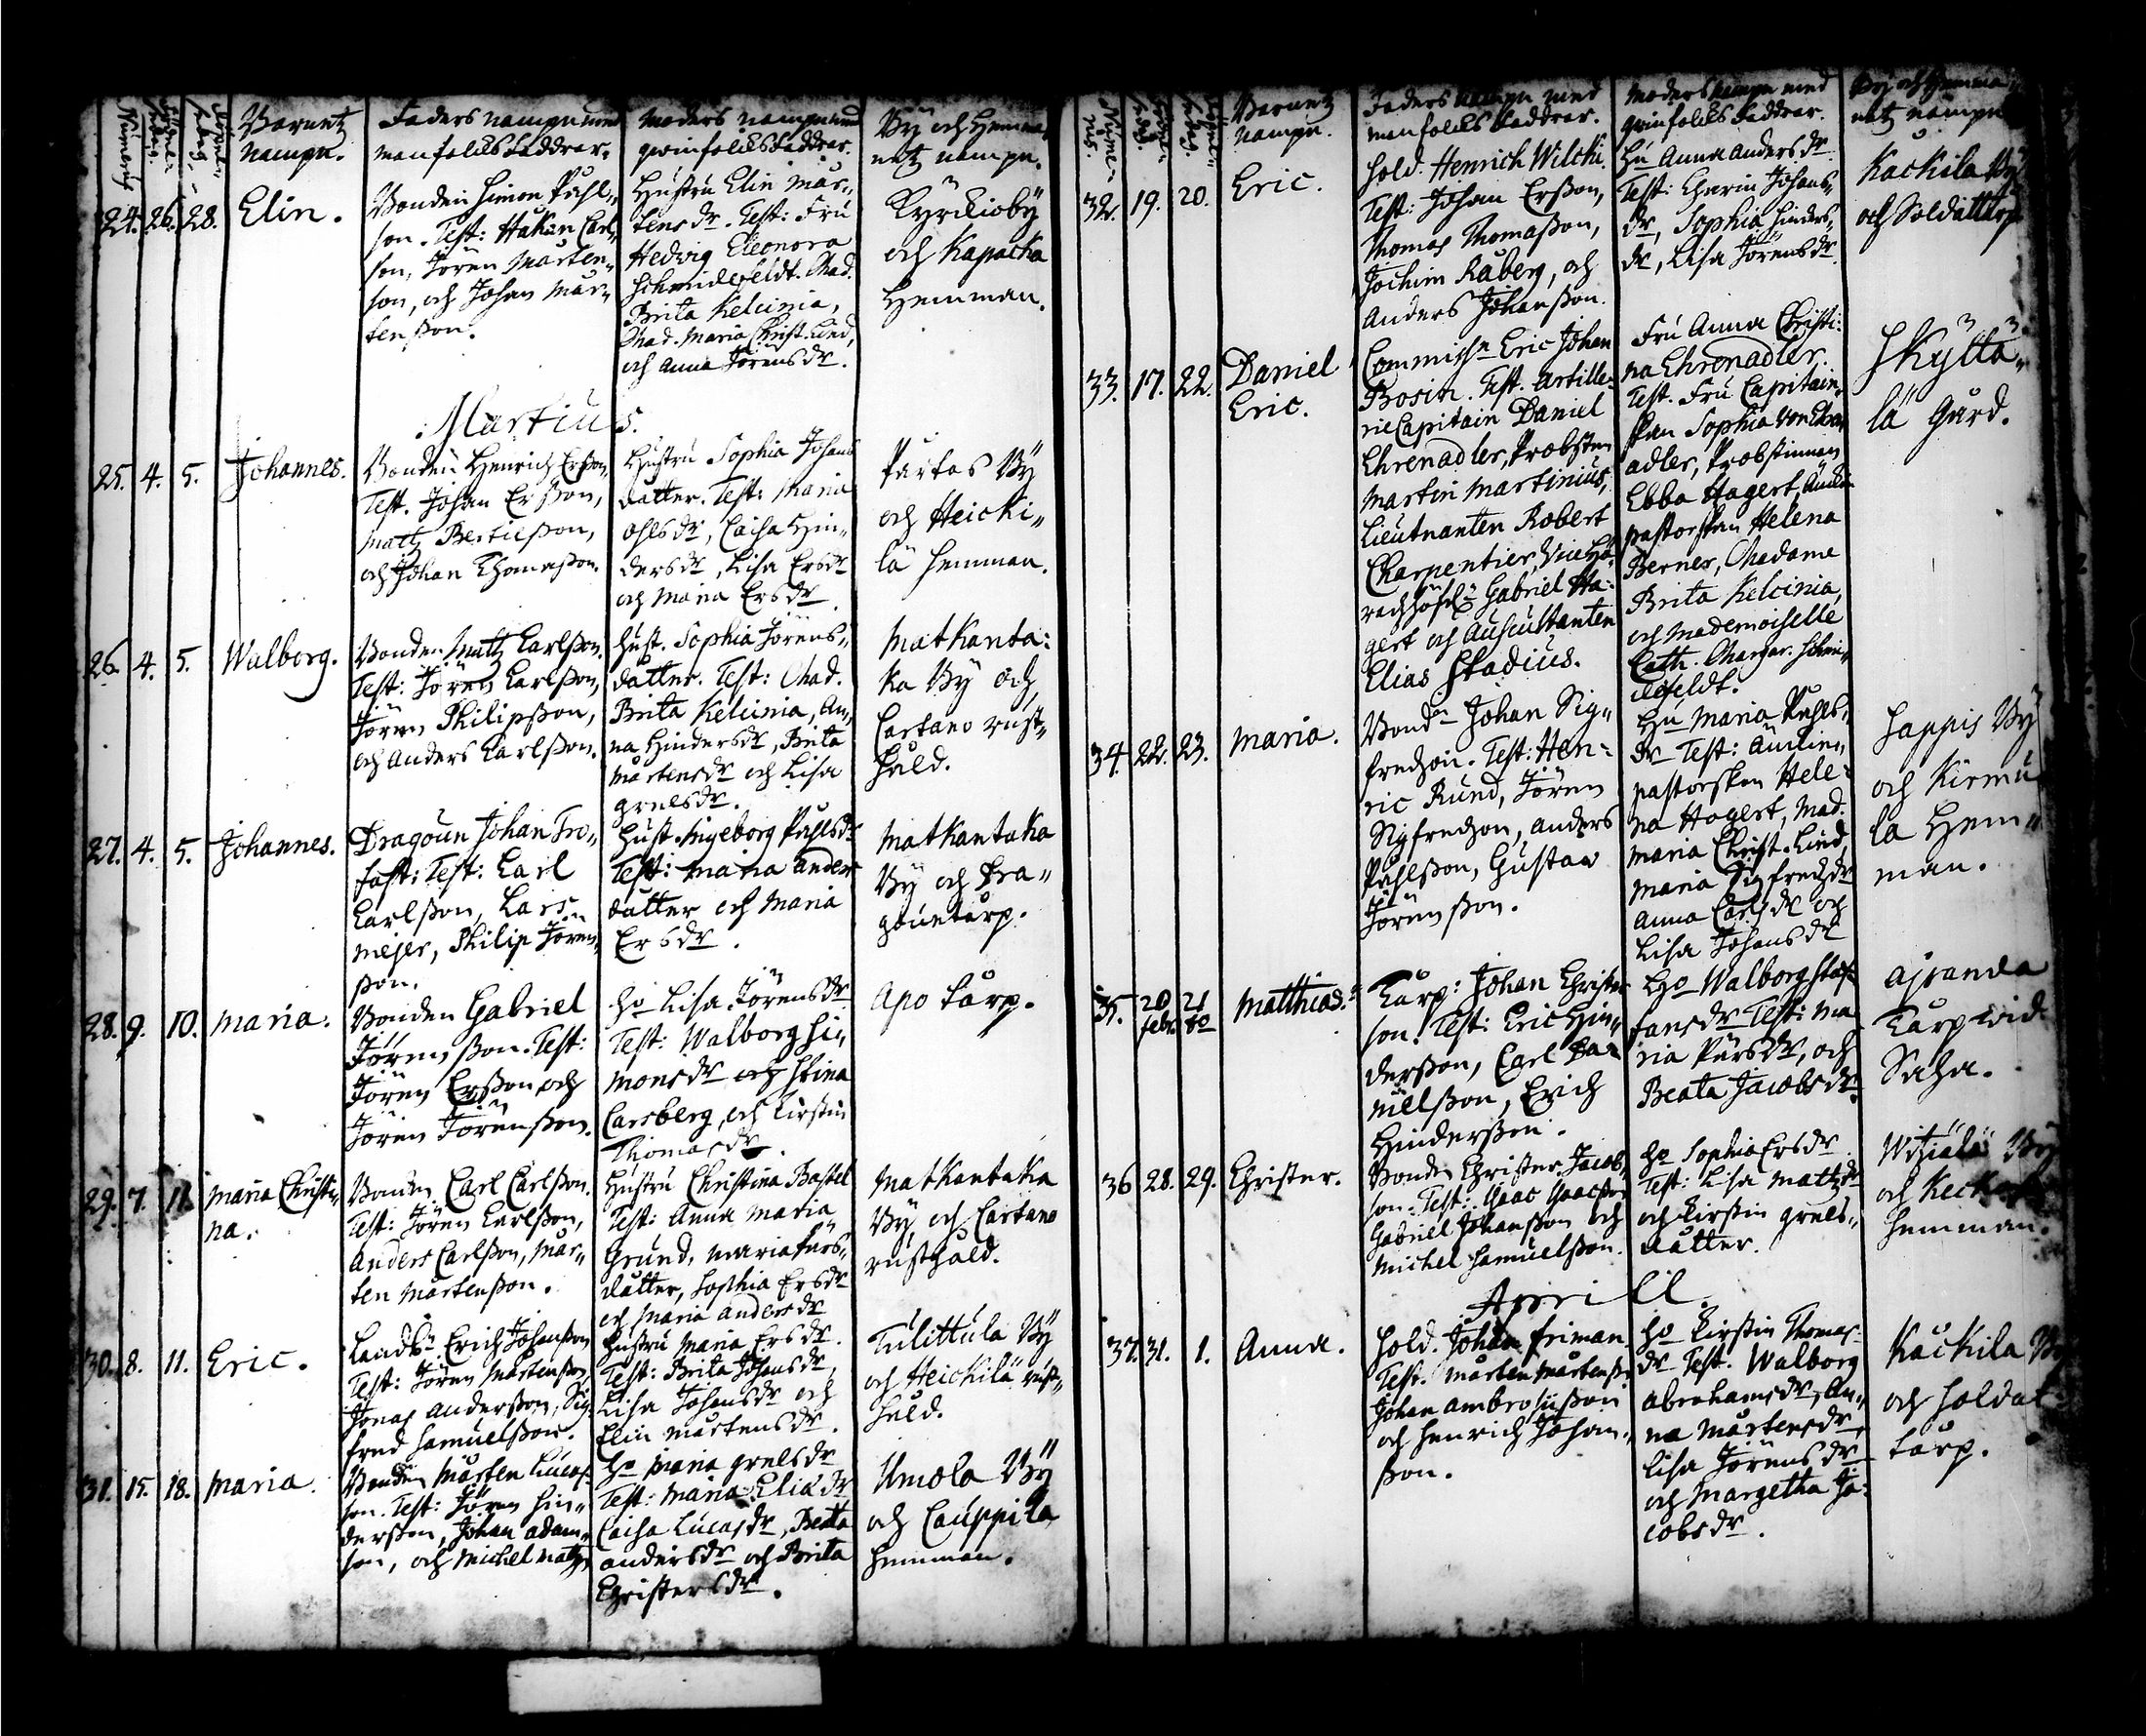 Barnetz
nampn.
Faders nampn med
manfolcks faddrar.
Moders nampn med
qwinfolcks faddrar.
Bÿ och Hemma-
netz nampn.
24. 26. 28. Elin.
Bonden Simon Påhl„
son. Test: Håkan Carl„
son, Jören Mårten„
son, och Johan Mår„
tensson.
Hustru Elin Mår„
tensdr. Test: Fru
Hedvig Eleonora
Schmidefeldt. Mad.
Brita Kelcinia,
Mad. Maria Christ. Lind,
och Anna Jörensdr.
Kyrckiobÿ
och Kapacka
Hemman.
Martius.
25. 4. 5. Johannes.
Bonden Henrich Ersson
Test. Johan Ersson,
Matz Bertilsson,
och Johan Thomasson.
Hustru Sophia Johans
datter. Test: Maria
Ohlsdr, Caisa Hin„
dersdr, Lisa Ersdr
och Maria Ersdr.
Partas Bÿ
och Heicki„
lä hemman.
26. 4. 5. Walborg.
Bonden Matz Carlsson.
Test: Jören Carlsson,
Jören Philipsson,
och Anders Carlsson.
Hust. Sophia Jörens„
datter. Test: Mad.
Brita Kelcinia, An„
na Hindersdr, Brita
Mårtensdr och Lisa
Grelsdr.
Matkanta:
ka Bÿ och
Cartano rust„
håld.
27. 4. 5. Johannes.
Dragoun Johan Tro„
fast: Test: Carl
Carlsson, Lars
Mejer, Philip Jören„
sson.
Hust. Ingeborg Påhlsdr
Test: Maria Anders
datter och Maria
Ersdr.
Matkantaka
Bÿ och Dra„
gountorp.
28. 9. 10. Maria.
Bonden Gabriel
Jörensson. Test:
Jören Ersson och
Jören Jörensson.
Ho Lisa Jörensdr
Test: Walborg Si„
monsdr och Stina
Carsberg, och Kirstin
Thomasdr.
Apo torp.
29. 7. 11. Maria Christi„
na.
Bonden Carl Carlsson.
Test: Jören Carlsson,
Anders Carlsson, Mår„
ten Mårtensson.
Hustru Christina Bastel
Test: Anna Maria
Grund, Maria Lars„
datter, Sophia Ersdr
och Maria Andersdr
Matkantaka
Bÿ, och Cartano
rusthåld.
30. 8. 11. Eric.
Landbn Erich Johansson
Test: Jören Mårtensson,
Jonas Andersson, Sig„
fred Samuelsson.
Hustru Maria Ersdr.
Test: Brita Johansdr,
Lisa Johansdr och
Elin Mårtensdr.
Tulittula Bÿ
och Heickilä rust„
håld.
31. 15. 18. Maria.
Bonden Mårten Lucas„
son. Test: Jören Hin„
dersson, Johan Adam„
son, och Michel Matzs.
Ho Maria Grelsdr
Test: Maria Eliædr
Caisa Lucasdr, Beata
Andersdr och Brita
Christersdr.
Umola Bÿ
och Cauppila
hemman.
Barnetz
nampn.
Faders nampn med
manfolcks faddrar.
Moders nampn med
qwinfolcks faddrar.
Bÿ och Hemma
netz nampn
32. 19. 20. Eric.
Sold. Henrich Wilcki.
Test: Johan Ersson,
Thomas Thomasson,
Jochim Råberg, och
Anders Johansson.
Hu Anna Andersdr.
Test: Chaerin Johans„
dr, Sophia Hinders„
dr, Lisa Jörensdr.
Kackila Bÿ
och Soldattorp
33. 17. 22. Daniel
Eric.
Commissn Eric Johan
Bosin. Test. Artille„
rie Capitain Daniel
Ehrenadler, Probsten
Martin Martinius,
Lieutnanten Robert
Charpentier, Vice Hä
radzhöfd: Gabriel Ha:
gert och Auscultanten
Elias Stadius.
Fru Anna Christi:
na Ehrenadler.
Test. Fru Capitain„
skan Sophia von Ehren
adler, Probstinnan
Ebba Hagert, Amiral
pastorskan Helena
Berner, Madame
Brita Kelcinia,
och Mademoiselle
Cath. Margar. Schmi„
defeldt.
Skÿttä„
lä Gård.
34. 22. 23. Maria.
Bondn Johan Sig„
fredzon. Test: Hen„
ric Rund, Jören
Sigfredzon, Anders
Påhlsson, Gustav
Jörensson.
Hu Maria Påhls„
dr Test:
pastorskan Hele„
na Hagert, Mad.
Maria Christ. Lind,
Maria Sigfredzdr
Anna Carlsdr och
Lisa Johansdr
Sappis Bÿ
och Kirmu
la Hem„
man.
35. 20 febr. 21 Matthias.
Torp: Johan Christer
son. Test: Eric Hin„
dersson, Carl Da„
nielsson, Erich
Hindersson.
Ho Walborg Staf„
fansdr Test: Ma
ria Pärsdr, och
Beata Jacobsdr.
Ajranda
Torp wid
Saha.
36 28. 29. Christer.
Bonden Christer Jacob„
son. Test: Isaac Isacsson
Gabriel Johansson och
Michel Samuelsson.
Ho Sophia Ersdr.
Test: Lisa Matzdr
och Kirstin Grels„
datter.
Witzialä Bÿ
och
hemman.
Aprill.
37. 31. 1. Anna.
Sold. Johan Friman.
Test. Mårten Mårtenss:
Johan Ambrosiusson
och Henrich Johan„
sson.
Ho Kirstin Thomas„
dr Test. Walborg
Abrahamsdr, An„
na Mårtensdr,
Lisa Jörensdr
och Margetha Ja„
cobsdr.
Kackila Bÿ
och Soldat„
torp.